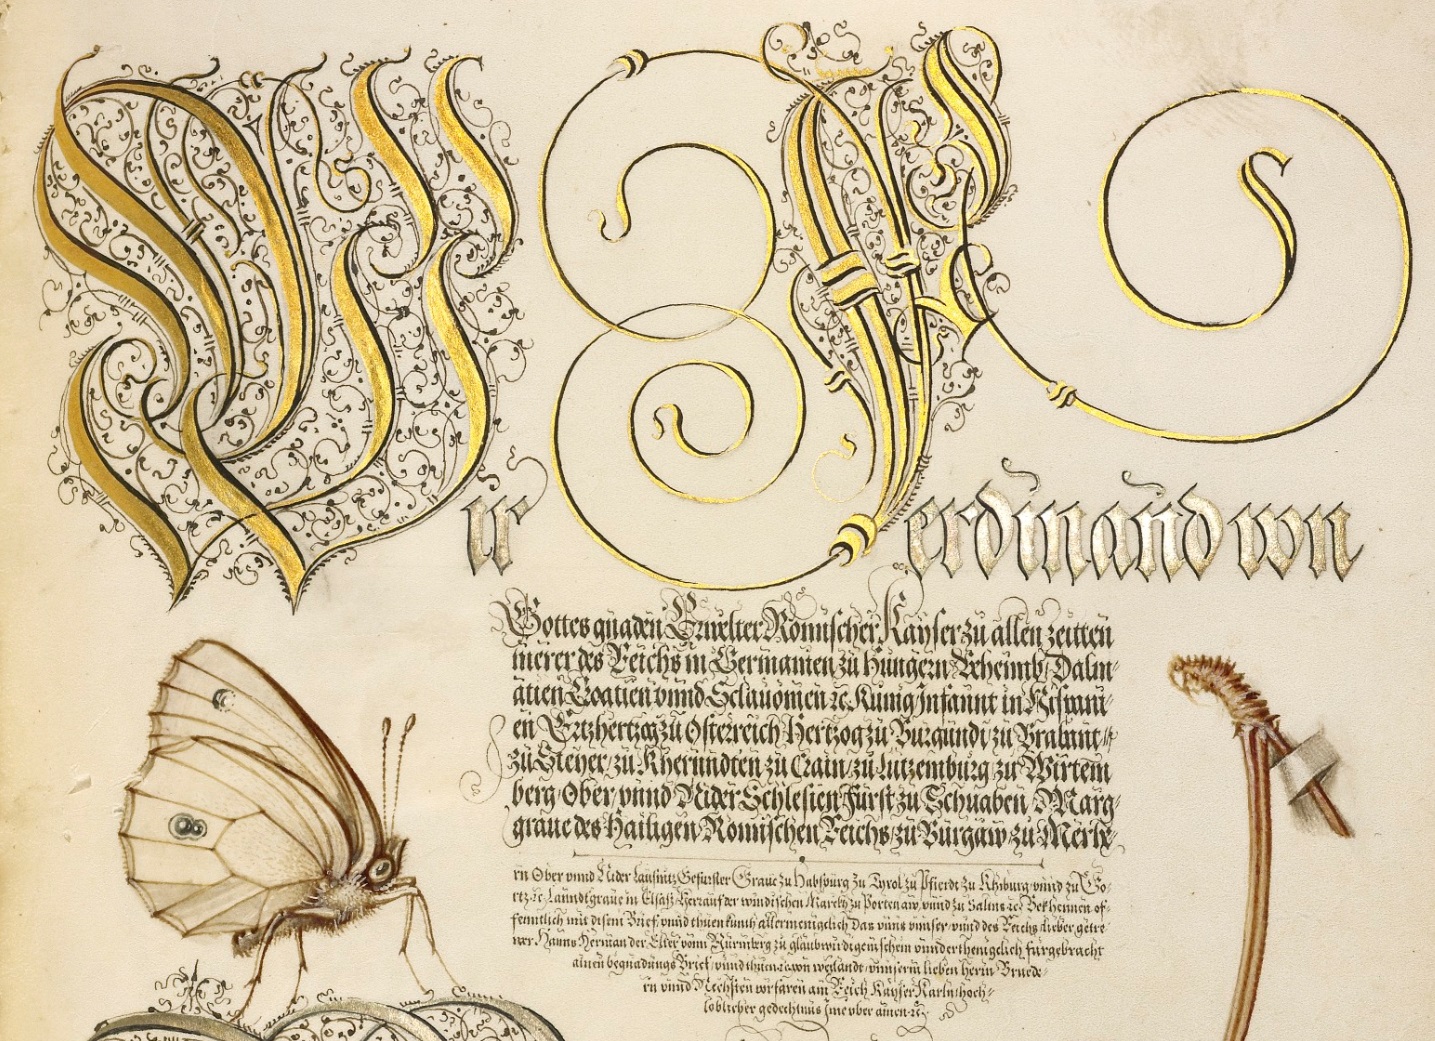 Wir Ferdinand von
Gottes gnaden Erwelter Römischer Kayser zu allen zeitten
merer des Reichs in Germanien zu Hungern Beheimb, Dalm-
atien Croatien vnnd Sclauonien ꝛc. Kunig Infannt in Hispani-
en Ertzhertzog zu Osterreich Hertzog zu Burgundi, zu Brabant,
zu Steyer, zu Kherndten zu Crain, zu Lutzemburg zu Wirtem
berg Ober, vnnd Nider Schlesien Fürst zu Schwaben, Marg-
graue des Hailigen Römischen Reichs zu Burgaw, zu Merhe-
rn Ober vnnd Nider Lausnitz Gefurster Graue zu Habspurg zu Tyrol zu Pfierdt zu Khiburg vnnd zu Go-
rtz ꝛc. Lanndtgraue in Elsass Herr auf der windischen March zu Portenaw, vnnd zu Salins ꝛc. Bekhennen of-
fenntlich mit disem Brief, vnnd thuen kunth allermenigclich Das vnns vnnser, vnnd des Reichs lieber getre-
wer Hanns Herman der Elter vonn Nürmberg zu glaubwirdigem schein vnnderthenigclich fürgebracht
ainen begnadungs Brief, vnnd weylandt, vnnserm lieben herrn Bruede-
rn vnnd Nechsten vorfaren am Reich Kayser Karln, hoch-
loblicher gedechtnus Ime vber ainen ꝛc.